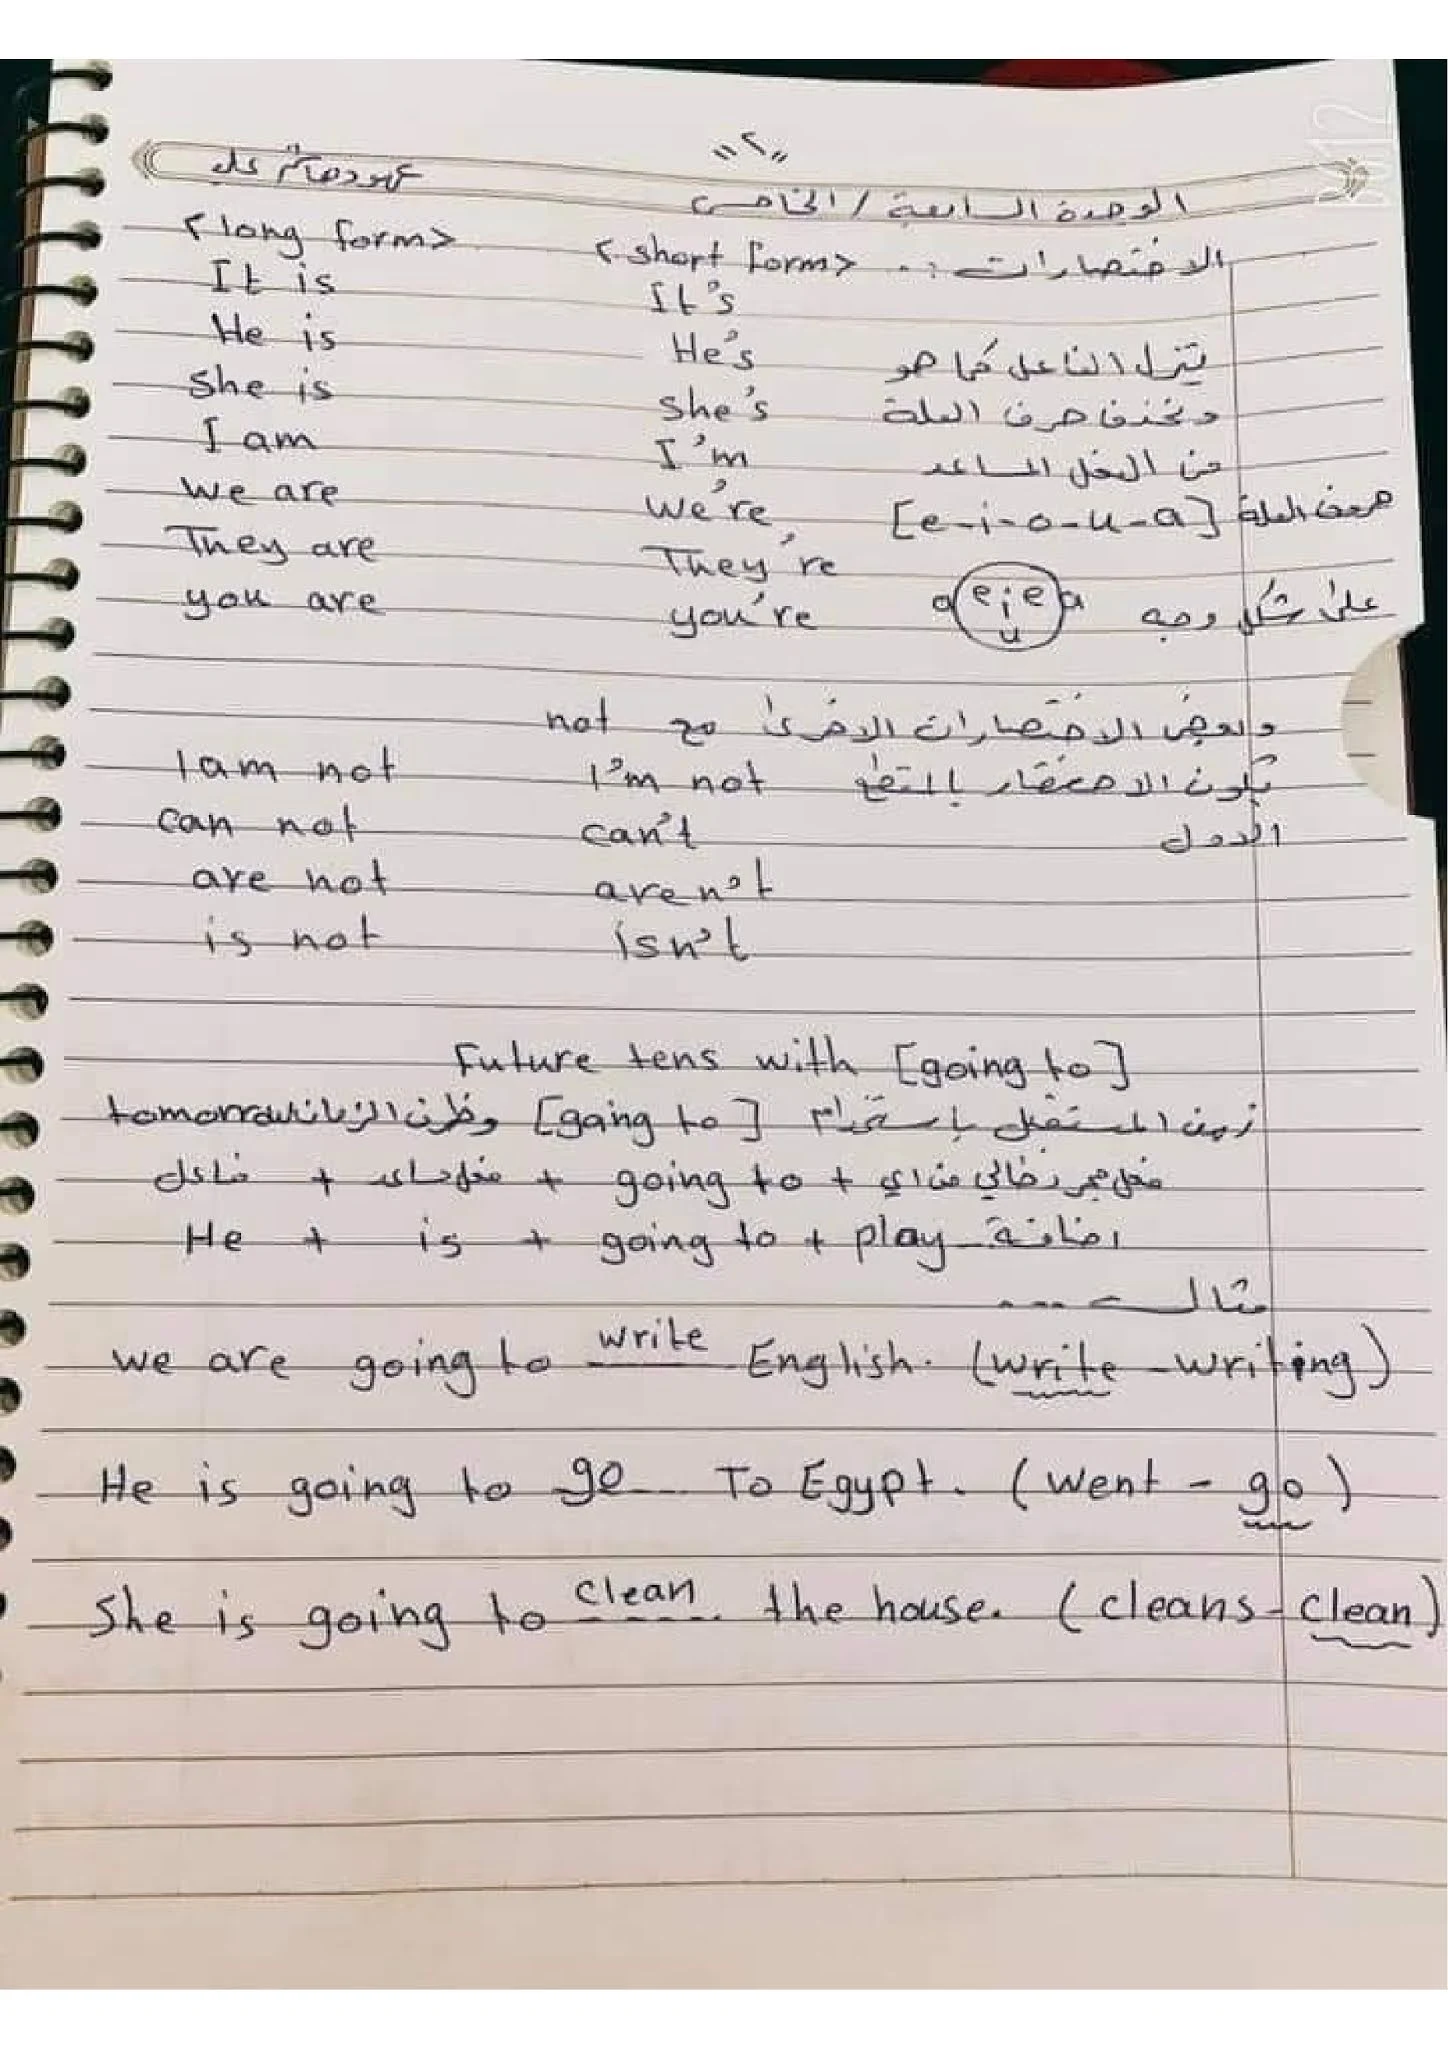 "٢"
الوحدة السابعة / الخامس عهود هاشم علي
الاختصارات :. <short form> <long form>
It is It's
He is He's ينزل الفاعل كما هو
she is she's ونحذف حرف العلة
I am I'm من الفعل المساعد
we are we're [e-i-o-u-a] حروف العلة
They are They're
you are you're a e i e a u على شكل وجه
وبعض الاختصارات الاخرى مع not
I am not I'm not يكون الاختصار بالمقطع
can not can't الاول
are not aren't
is not isn't
Future tens with [going to]
زمن المستقبل باستخدام [going to] وظرف الزمان tomorrow
فاعل + فعل مساعد + going to + فعل مجرد خالي من اي
He + is + going to + play اضافة
مثال ...
we are going to write English. (write - writing)
He is going to go To Egypt. (went - go)
She is going to clean the house. (cleans - clean)